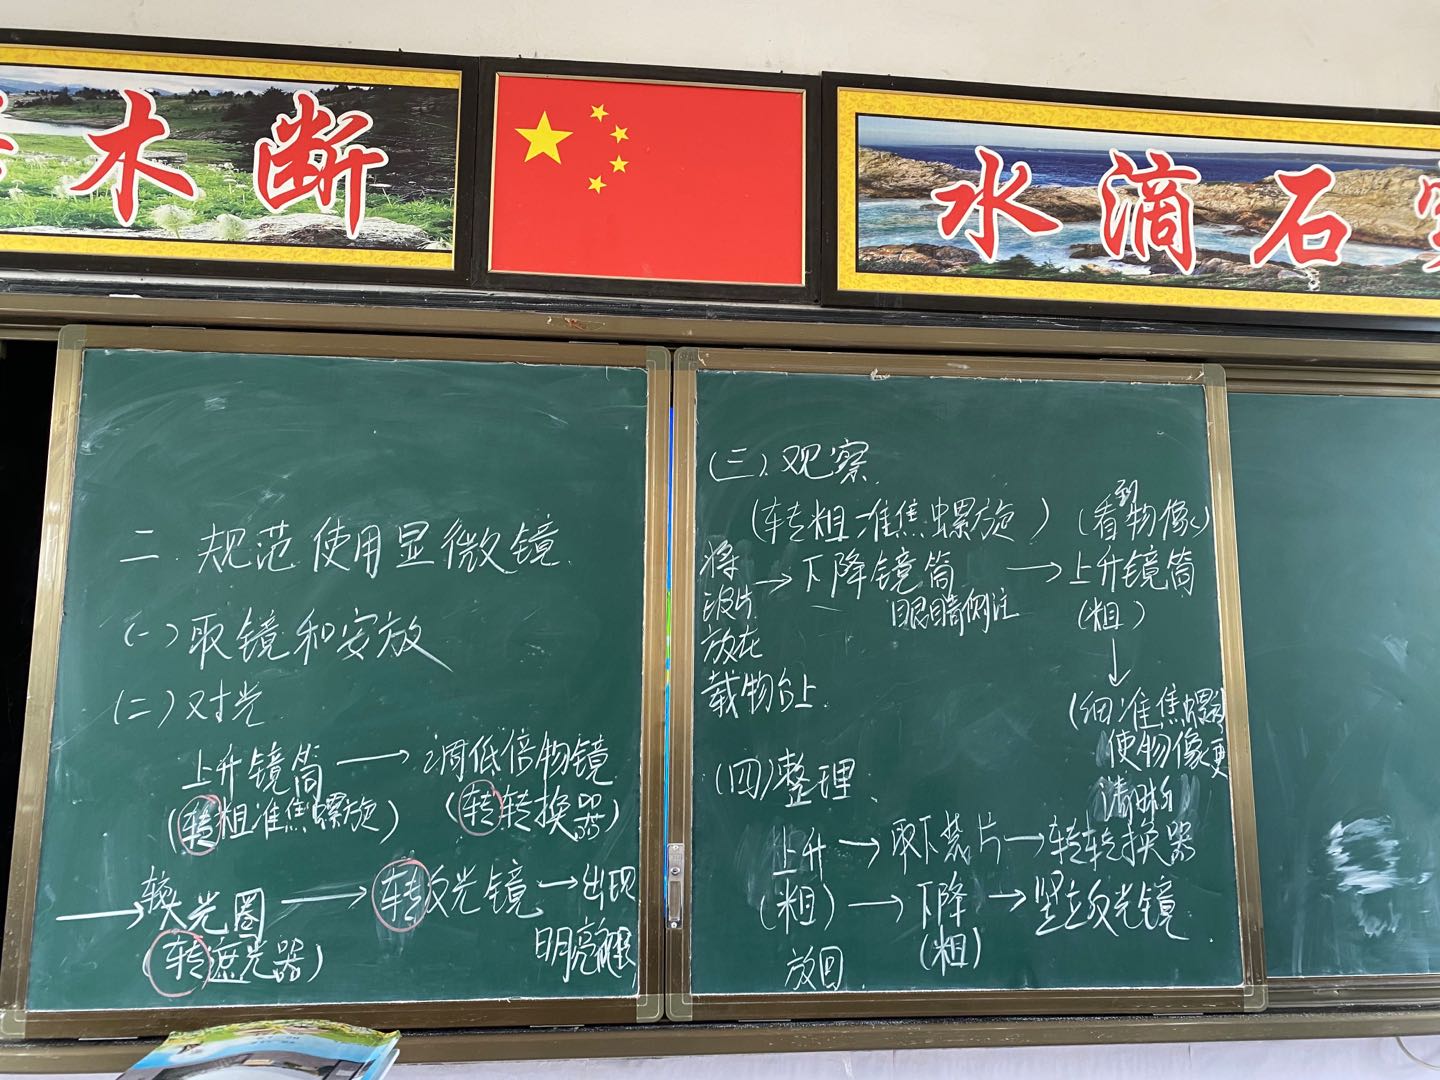 木断
水滴石
二.规范使用显微镜.
(一)取镜和安放
(二)对光
上升镜筒→调低倍物镜
(转粗准焦螺旋) (转转换器)
→较大光圈→转反光镜→出现
(转遮光器) 明亮视野
(三).观察
(转粗准焦螺旋) (看到物像)
将玻片放在载物台上.
→下降镜筒→上升镜筒
眼睛侧注 (粗)
↓
(细准焦螺旋
使物像更
清晰
(四)整理.
上升→取下装片→转转换器
(粗)→下降→竖立反光镜.
(粗)
放回.